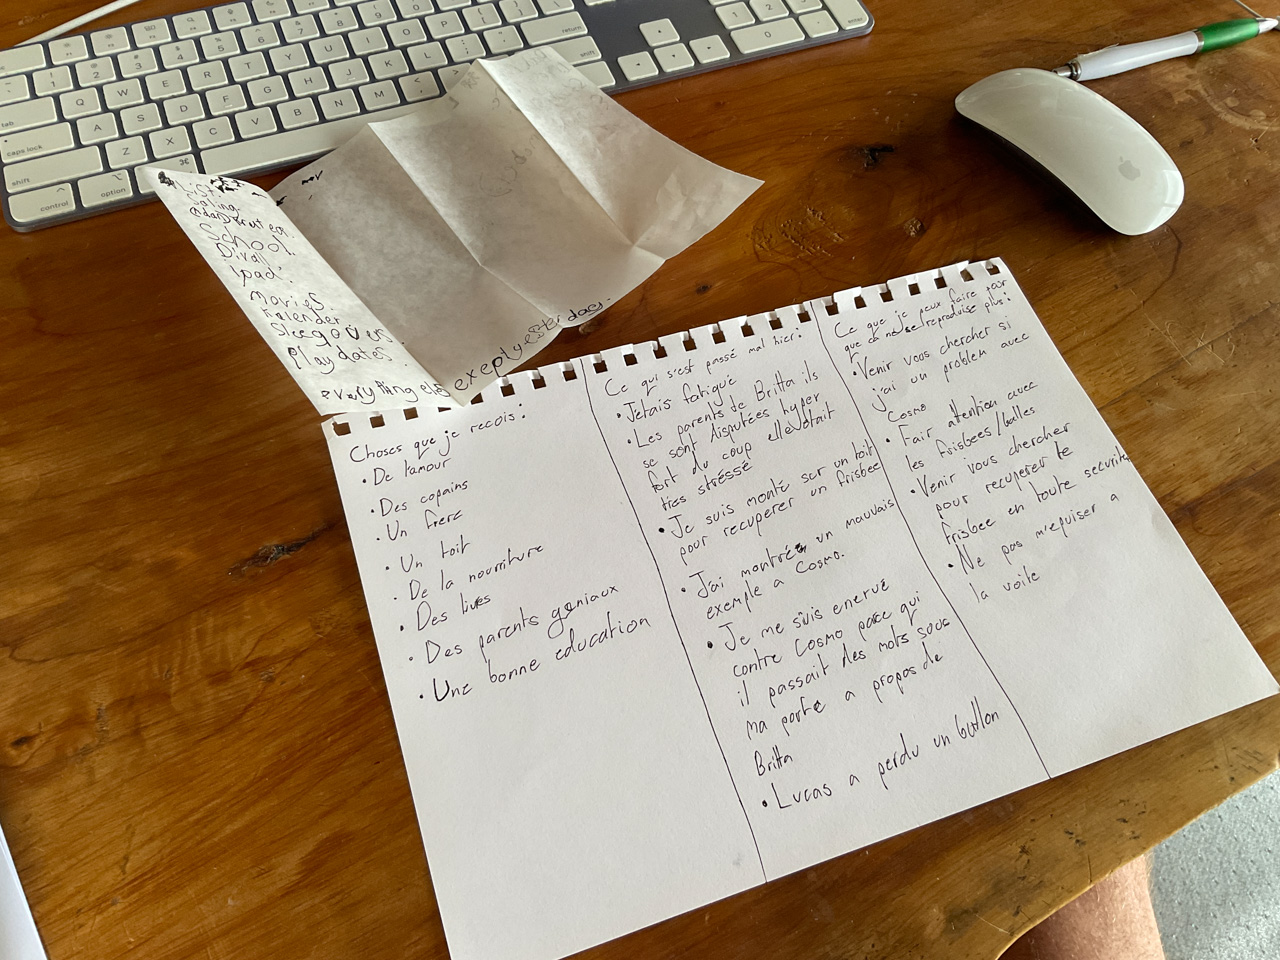 List.
Saling.
School.
Divall
ipad.
movies.
Kalender
Sleepovers.
Playdates.
everything els exeptyesterday.
mov
Choses que je recois:
• De l'amour
• Des copains
• Un frere
• Un toit
• De la nourriture
• Des livres
• Des parents geniaux
• Une bonne education
Ce qui s'est passé mal hier:
• J'etais fatigué
• Les parents de Britta ils
se sont disputées hyper
fort du coup elle etait
tres stressé
• Je suis monté sur un toit
pour recuperer un frisbee
• J'ai montrée un mauvais
exemple a Cosmo.
• Je me suis enervé
contre Cosmo parce qui
il passait des mots sous
ma porte a propos de
Britta
• Lucas a perdu un ballon
Ce que je peux faire pour
que ca ne se reproduise plus:
• Venir vous chercher si
j'ai un problem avec
Cosmo
• Fair attention avec
les frisbees/balles
• Venir vous chercher
pour recuperer le
frisbee en toute securitee
• Ne pas m'epuiser a
la voile
tab
caps lock
shift
control
option
⌘
Q W E R T Y U I O P
A S D F G H J K L
Z X C V B N M
return
shift
enter
1 2 3
0